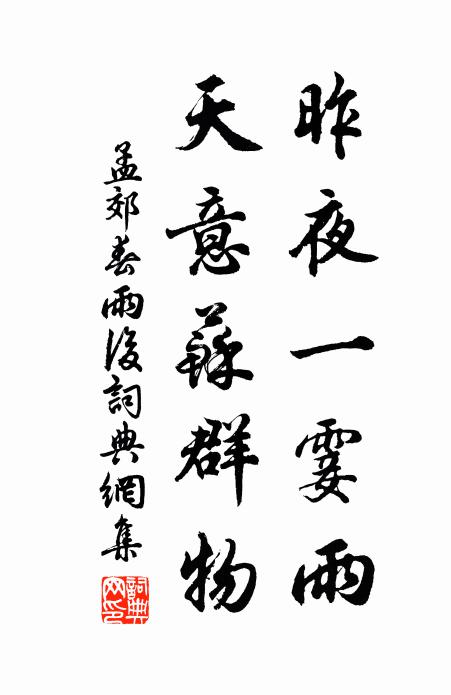 昨夜一霎雨
天意蘇群物
孟郊春雨後詞典網集
詞典網印